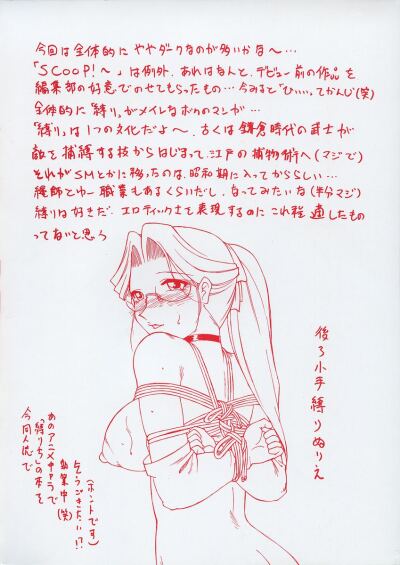 今回は全体的にややダークなのが多いかな～…
「SCOOP!～」は例外、あれはなんと、デビュー前の作品を
編集部の好意でのせてもらったもの…今みると「ひぃぃ」ってかんじ(笑)
全体的に「縛り」がメイレなボクのマンガ…
「縛り」は1つの文化だよ～、古くは鎌倉時代の武士が
敵を捕縛する技からはじまって、江戸の捕物術へ(マジで)
それがSMとかに移ったのは、昭和期に入ってかららしい…
縄師とゆー職業もあるくらいだし、なってみたいな(半分マジ)
縛りは好きだ、エロティックさを表現するのにこれ程適したもの
ってないと思う
後ろ小手縛りぬりえ
今同人誌で
「縛りもち」の本を
あのアニメキャラで
企業中(笑)
(ホントです)